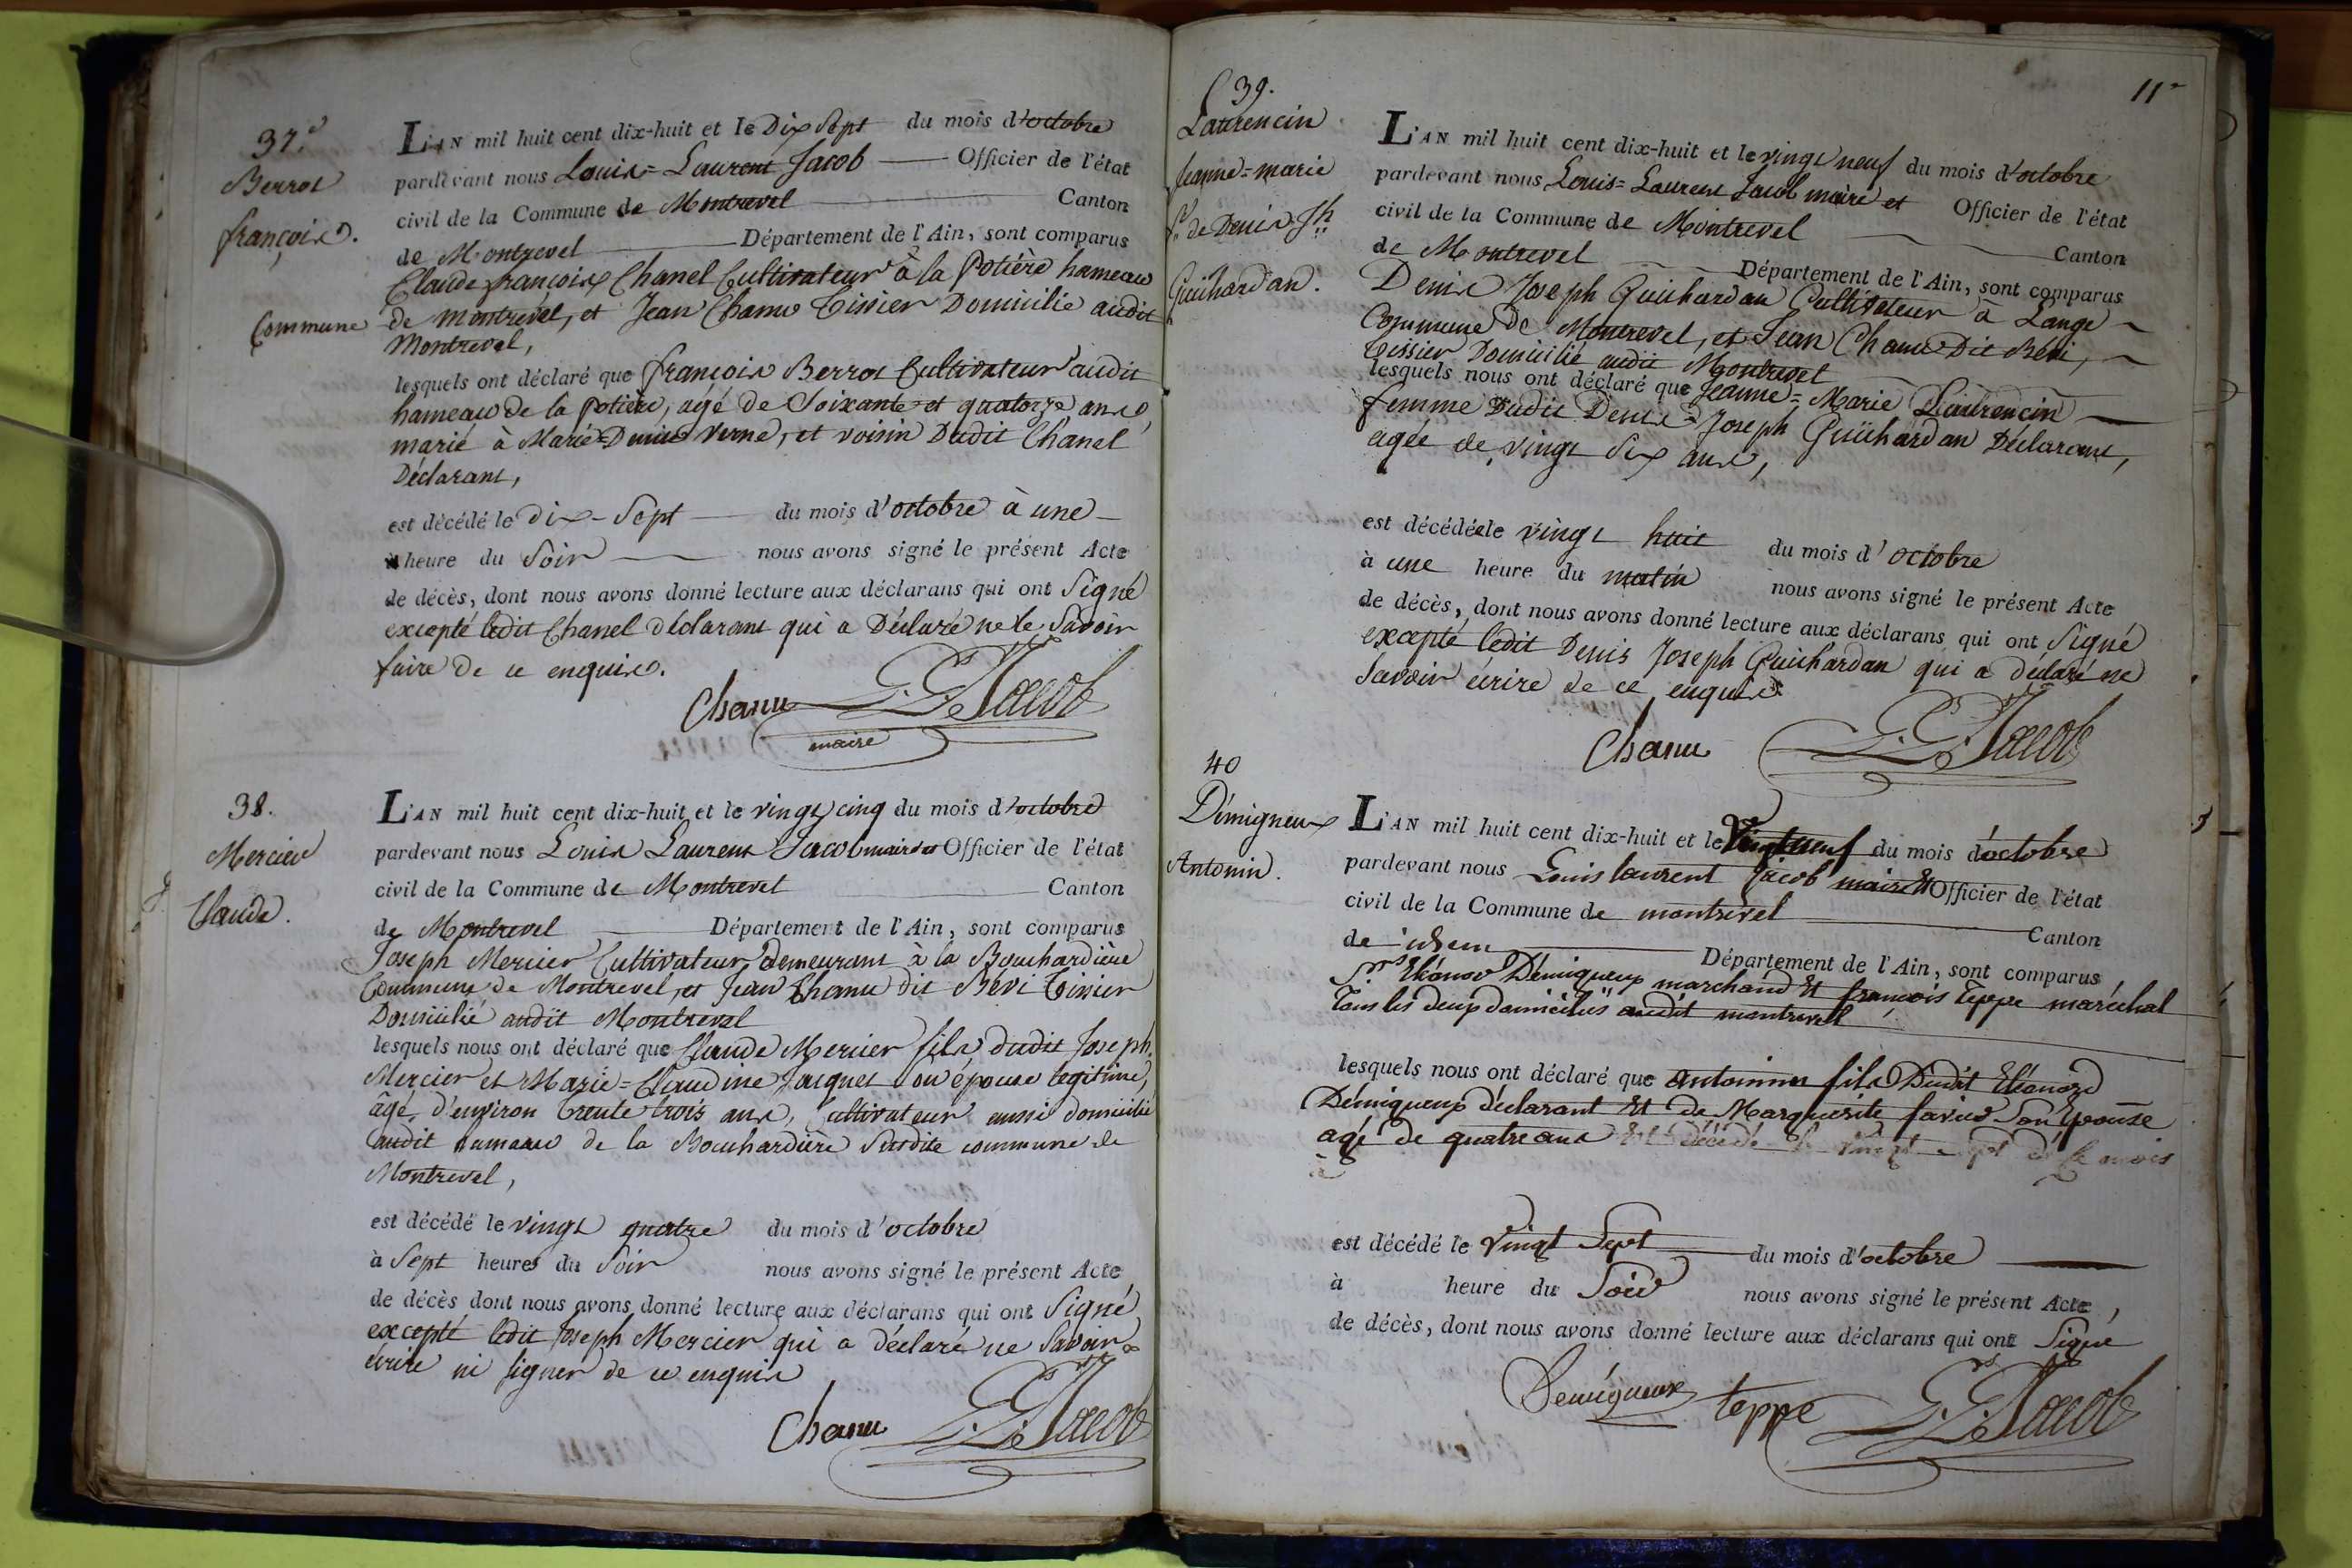 37.e
Berrot
françois.
Commune
L'AN mil huit cent dix-huit et le Dix Sept du mois d'octobre
pardevant nous Louis=Laurent Jacob Officier de l'état
civil de la Commune de Montrevel Canton
de Montrevel Département de l'Ain, sont comparus
Claude françois Chanel Cultivateur à la Potière hameau
de montrevel, et Jean Chanu Tissier Domicilié audit
Montrevel,
lesquels ont déclaré que françois Berrot Cultivateur audit
hameau de la potière, agé de Soixante et quatorze ans,
marié à Marie=Denise Verne, et voisin Dudit Chanel
Déclarant,
est décédé le dix-Sept du mois d'octobre à une
heure du Soir nous avons signé le présent Acte
de décès, dont nous avons donné lecture aux déclarans qui ont Signé
excepté ledit Chanel déclarant qui a Déclaré ne le Savoir
faire de ce enquis.
Chanu L. L. Jacob
maire
38.
Mercier
Claude.
L'AN mil huit cent dix-huit et le vingt cinq du mois d'octobre
pardevant nous Louis Laurent Jacob maire et Officier de l'état
civil de la Commune de Montrevel Canton
de Montrevel Département de l'Ain, sont comparus
Joseph Mercier Cultivateur demeurant à la Bouchardière
Commune de Montrevel, et Jean Chanu dit Bévi Tissier
Domicilié audit Montrevel
lesquels nous ont déclaré que Claude Mercier fils dudit Joseph
Mercier et Marie=Claudine Jacquet son épouse legitime,
âgé d'environ trente trois ans, Cultivateur aussi domicilié
audit hameau de la Bouchardière Susdite commune de
Montrevel,
est décédé le vingt quatre du mois d'octobre
à Sept heures du Soir nous avons signé le présent Acte
de décès dont nous avons donné lecture aux déclarans qui ont Signé
excepté ledit Joseph Mercier qui a déclaré ne Savoir
écrire ni signer de ce enquis
Chanu L. L. Jacob
11
39.
Laurencin
Jeanne=marie
fe. de Denis Jh
Guichardan.
L'AN mil huit cent dix-huit et le vingt neuf du mois d'octobre
pardevant nous Louis=Laurent Jacob maire et Officier de l'état
civil de la Commune de Montrevel
de Montrevel Canton
Département de l'Ain, sont comparus
Denis Joseph Guichardan Cultivateur à Lange
Commune de Montrevel, et Jean Chanu Dit Bévi,
Tissier Domicilié audit Montrevel
lesquels nous ont déclaré que Jeanne=Marie Laurencin
femme Dudit Denis=Joseph Guichardan Déclarant,
agée de vingt Six ans,
est décédée le vingt huit du mois d'octobre
à une heure du matin nous avons signé le présent Acte
de décès, dont nous avons donné lecture aux déclarans qui ont Signé
excepté ledit Denis Joseph Guichardan qui a déclaré ne
Savoir écrire de ce enquis
Chanu L. L. Jacob
40
Démigneux
Antonin.
L'AN mil huit cent dix-huit et le Vingt neuf du mois d'octobre
pardevant nous Louis laurent Jacob maire Et Officier de l'état
civil de la Commune de montrevel
de idem Canton
Département de l'Ain, sont comparus
Démigneux marchand Et françois Teppe maréchal
Tous les deux domiciliés audit montrevel
lesquels nous ont déclaré que antoinin fils Dudit Eléonord
Démigneux déclarant Et de Marguerite favier Son Epouse
agé de quatre ans Est décédé le vingt Sept de ce mois
à
est décédé le Vingt Sept du mois d'octobre
à heure du Soir nous avons signé le présent Acte,
de décès, dont nous avons donné lecture aux déclarans qui ont Signé
Demigneux teppe L. L. Jacob